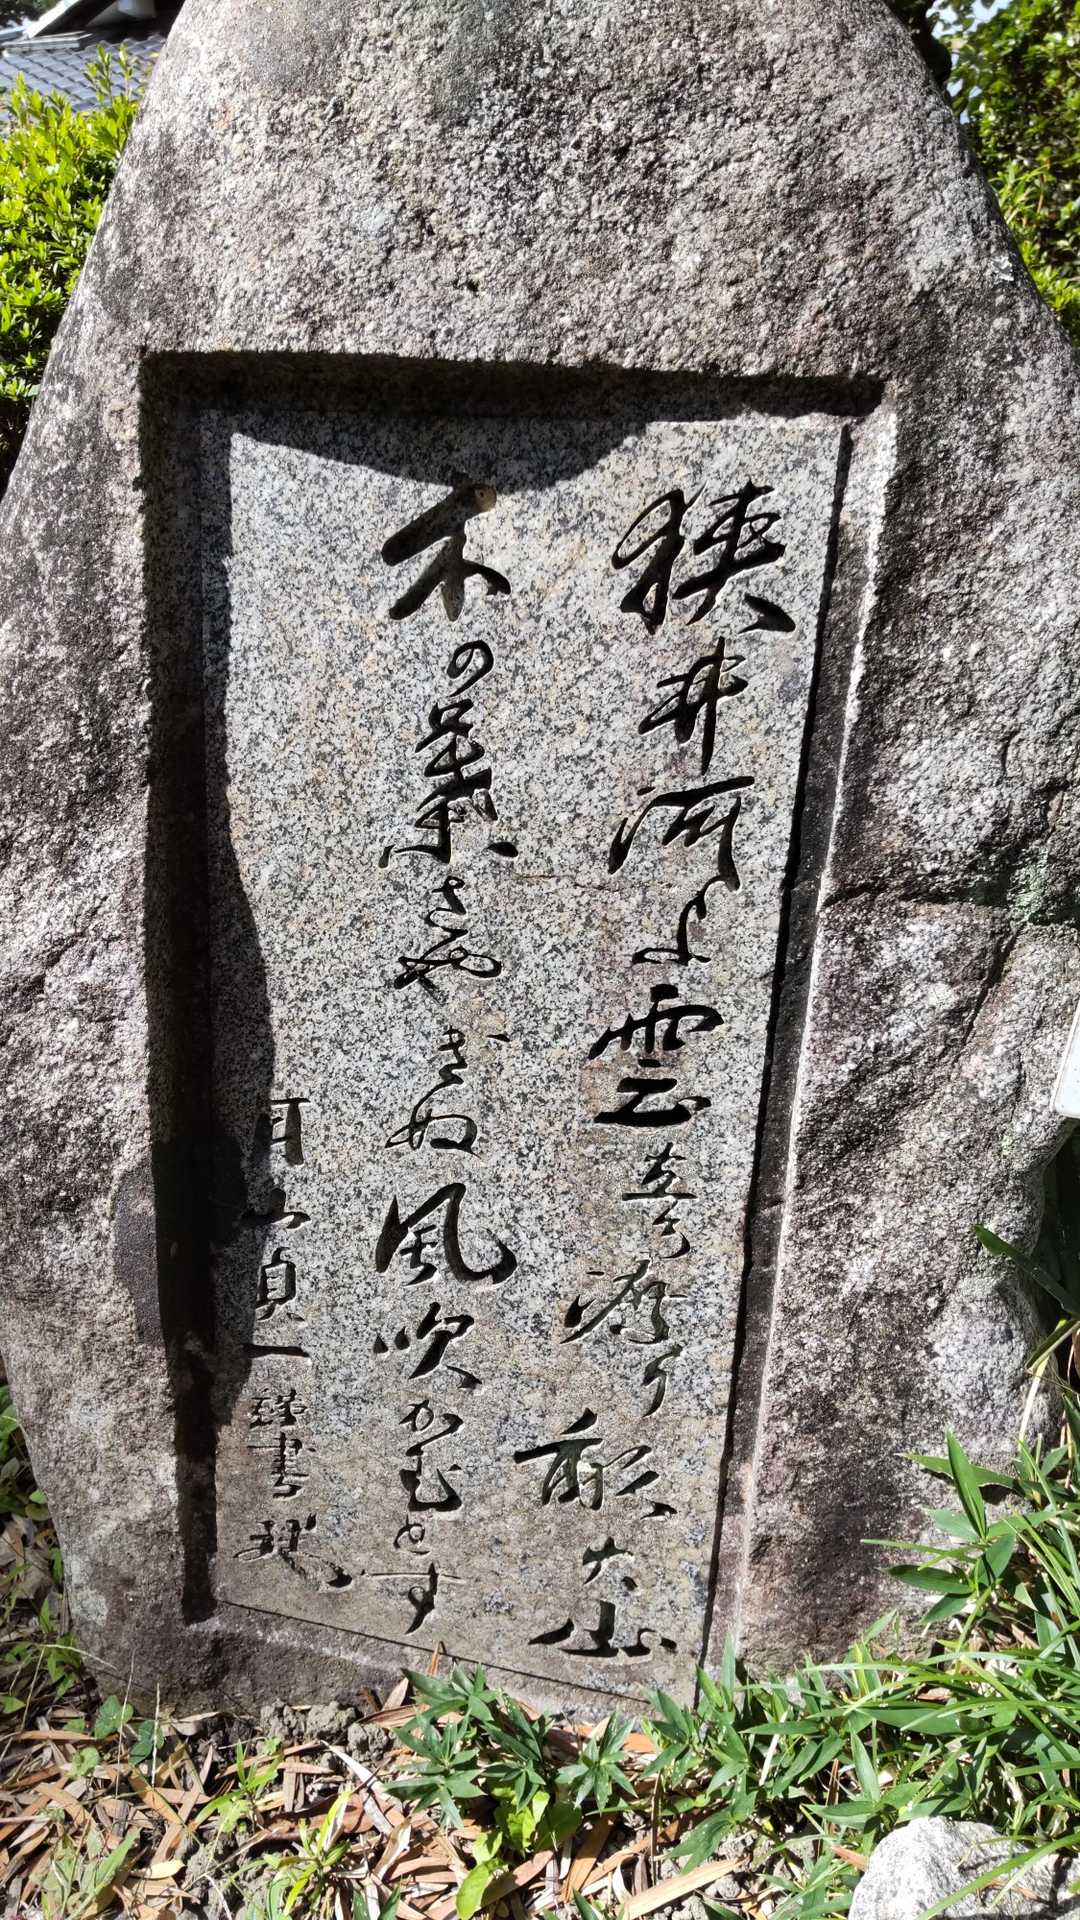 狭井河よ雲立ち渡り畝火山
木の葉さやぎぬ風吹かむとす
月山貞一謹書